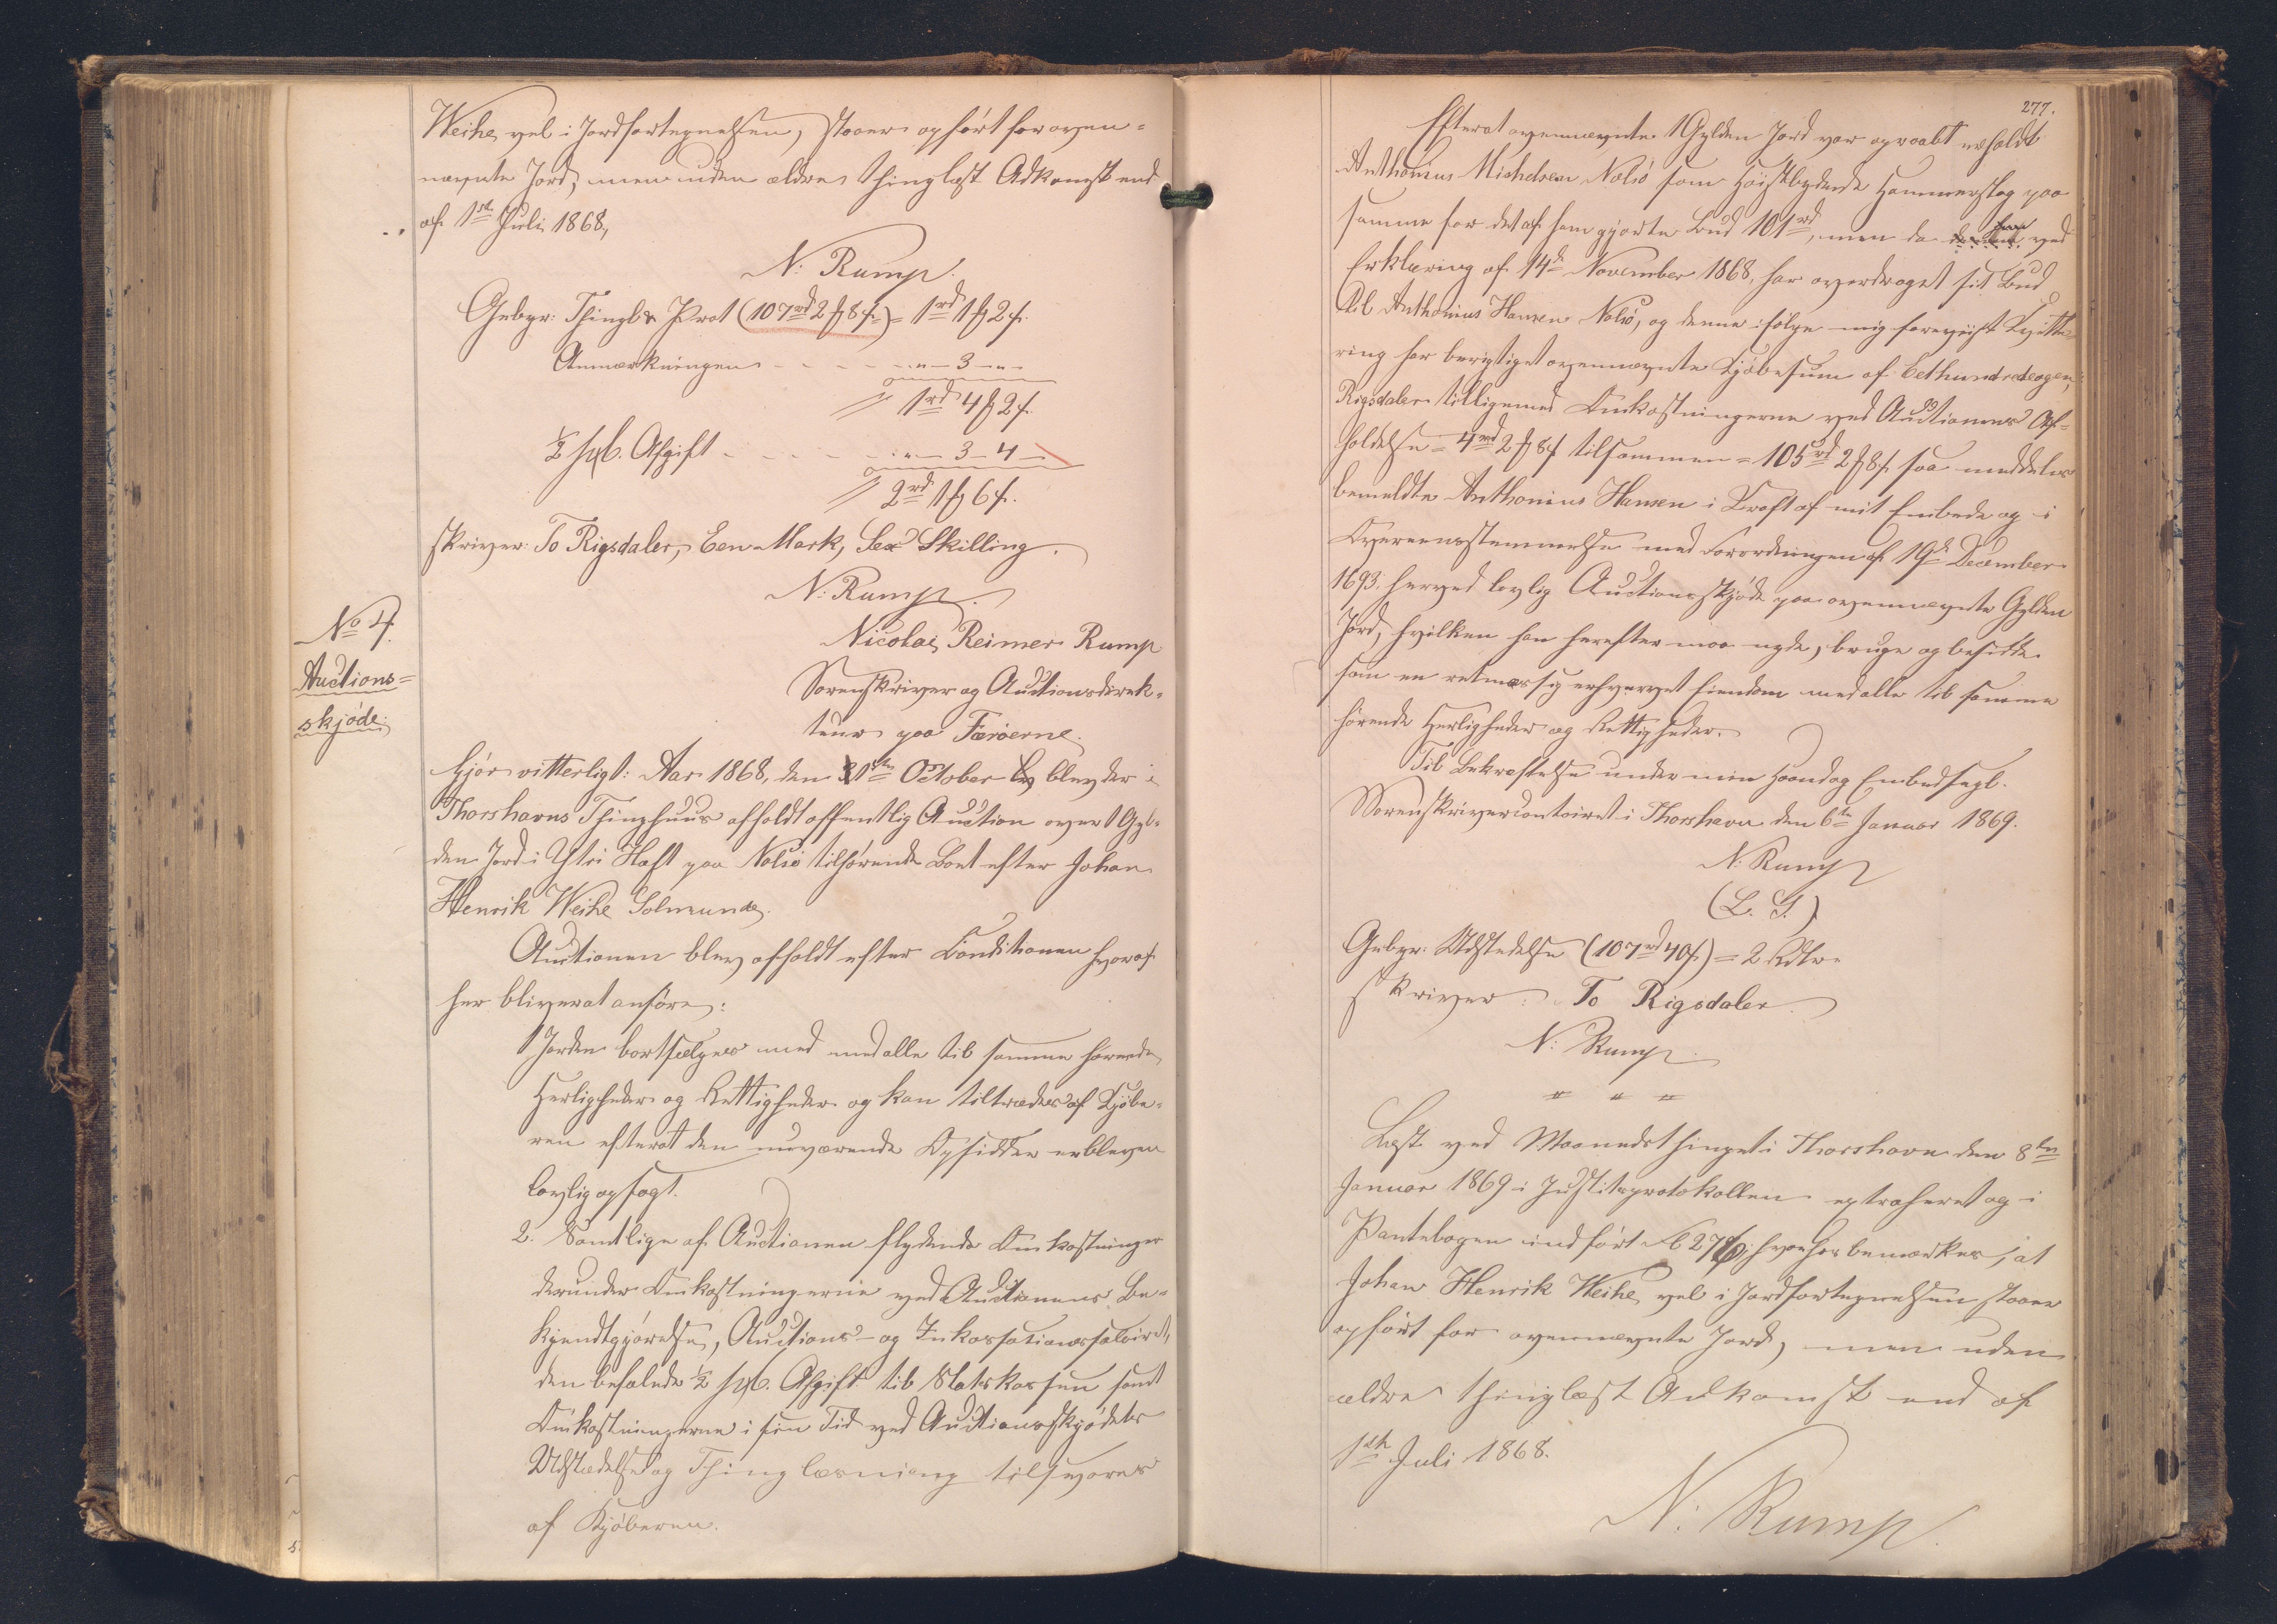 Weihe vel i Jordfortegnelsen, staaer opført for oven-
nævnte Jord, men uden ældre thinglæst Adkomst end
af 1ste Juli 1868,
N: Rump.
Gebyr: Thingl & Prot (107rd 2 ß 8 f) = 1rd 1 ß 2 f.
Anmærkningen - - - - - " - 3 - " -
1rd 4 ß 2 f.
½ pCt. Afgift - - - - - " - 3 - 4 -
2rd 1 ß 6 f.
skriver: To Rigsdaler, Een Mark, Sex Skilling.
N: Rump.
No 4.
Auctions-
skjøde.
Nicolai Reimer Rump
Sorenskriver og Auctionsdirek-
teur paa Færøerne.
Gjør vitterligt: Aar 1868, den 31te October blev der i
Thorshavns Thinghuus afholdt offentlig Auction over 1 Gyl-
den Jord i Ytri Hæft paa Nolsø tilhørende Boet efter Johan
Henrik Weihe Solmunde.
Auctionen blev afholdt efter Conditionen hvoraf
her bliver at anføre:
1 Jorden bortsælges med med alle til samme hørende
Herligheder og Rettigheder og kan tiltrædes af Kjøbe-
ren efterat den nuværende Opsidder er bleven
lovlig opsagt.
2. Samtlige af Auctionen flydende Omkostninger
derunder Omkostningerne ved Auctionens Be-
kjendtgjørelse, Auctions- og Inkassationssalairet,
den befalede ½ pCt. Afgift til Statskassen samt
Omkostningerne i sin Tid ved Auctionsskjødets
Udstædelse og Thinglæsning tilsvares
af Kjøberen.
277.
Efterat ovennævnte 1 Gylden Jord var opraabt erholdt
Anthonius Michelsen Nolsø som Høistbydende Hammerslag paa
samme for det af ham gjorte Bud 101rd, men da han ved
Erklæring af 14de November 1868, har overdraget sit Bud
til Anthonius Hansen Nolsø, og denne ifølge mig foreviist Qvitte-
ring har berigtiget ovennævnte Kjøbesum af Eethundredeogen
Rigsdaler tilligemed Omkostningerne ved Auctionens Af-
holdelse = 4rd 2 ß 8 f tilsammen = 105rd 2 ß 8 f. saa meddeles
bemeldte Anthonius Hansen i Kraft af mit Embede og i
Overeensstemmelse med Forordningen af 19de December
1693. herved lovlig Auctionsskjøde paa ovennævnte Gylden
Jord, hvilken han herefter maa nyde, bruge og besidde
som en retmæssig erhvervet Eiendom med alle til samme
hørende Herligheder og Rettigheder.
Til Bekræftelse under min Haand og Embedssegl.
Sorenskrivercontoiret i Thorshavn den 6te Januar 1869.
N: Rump
(L. S.)
Gebyr: Udstedelse (107rd 40 f) = 2 Rdlr.
skriver: To Rigsdaler.
N: Rump.
" " "
Læst ved Maanedsthinget i Thorshavn den 8de
Januar 1869 i Justitsprotokollen extraheret og i
Pantebogen indført hvorhos bemærkes, at
Johan Henrik Weihe vel i Jordfortegnelsen staaer
opført for ovennævnte Jord, men uden
ældre thinglæst Adkomst end af
1ste Juli 1868.
N: Rump.